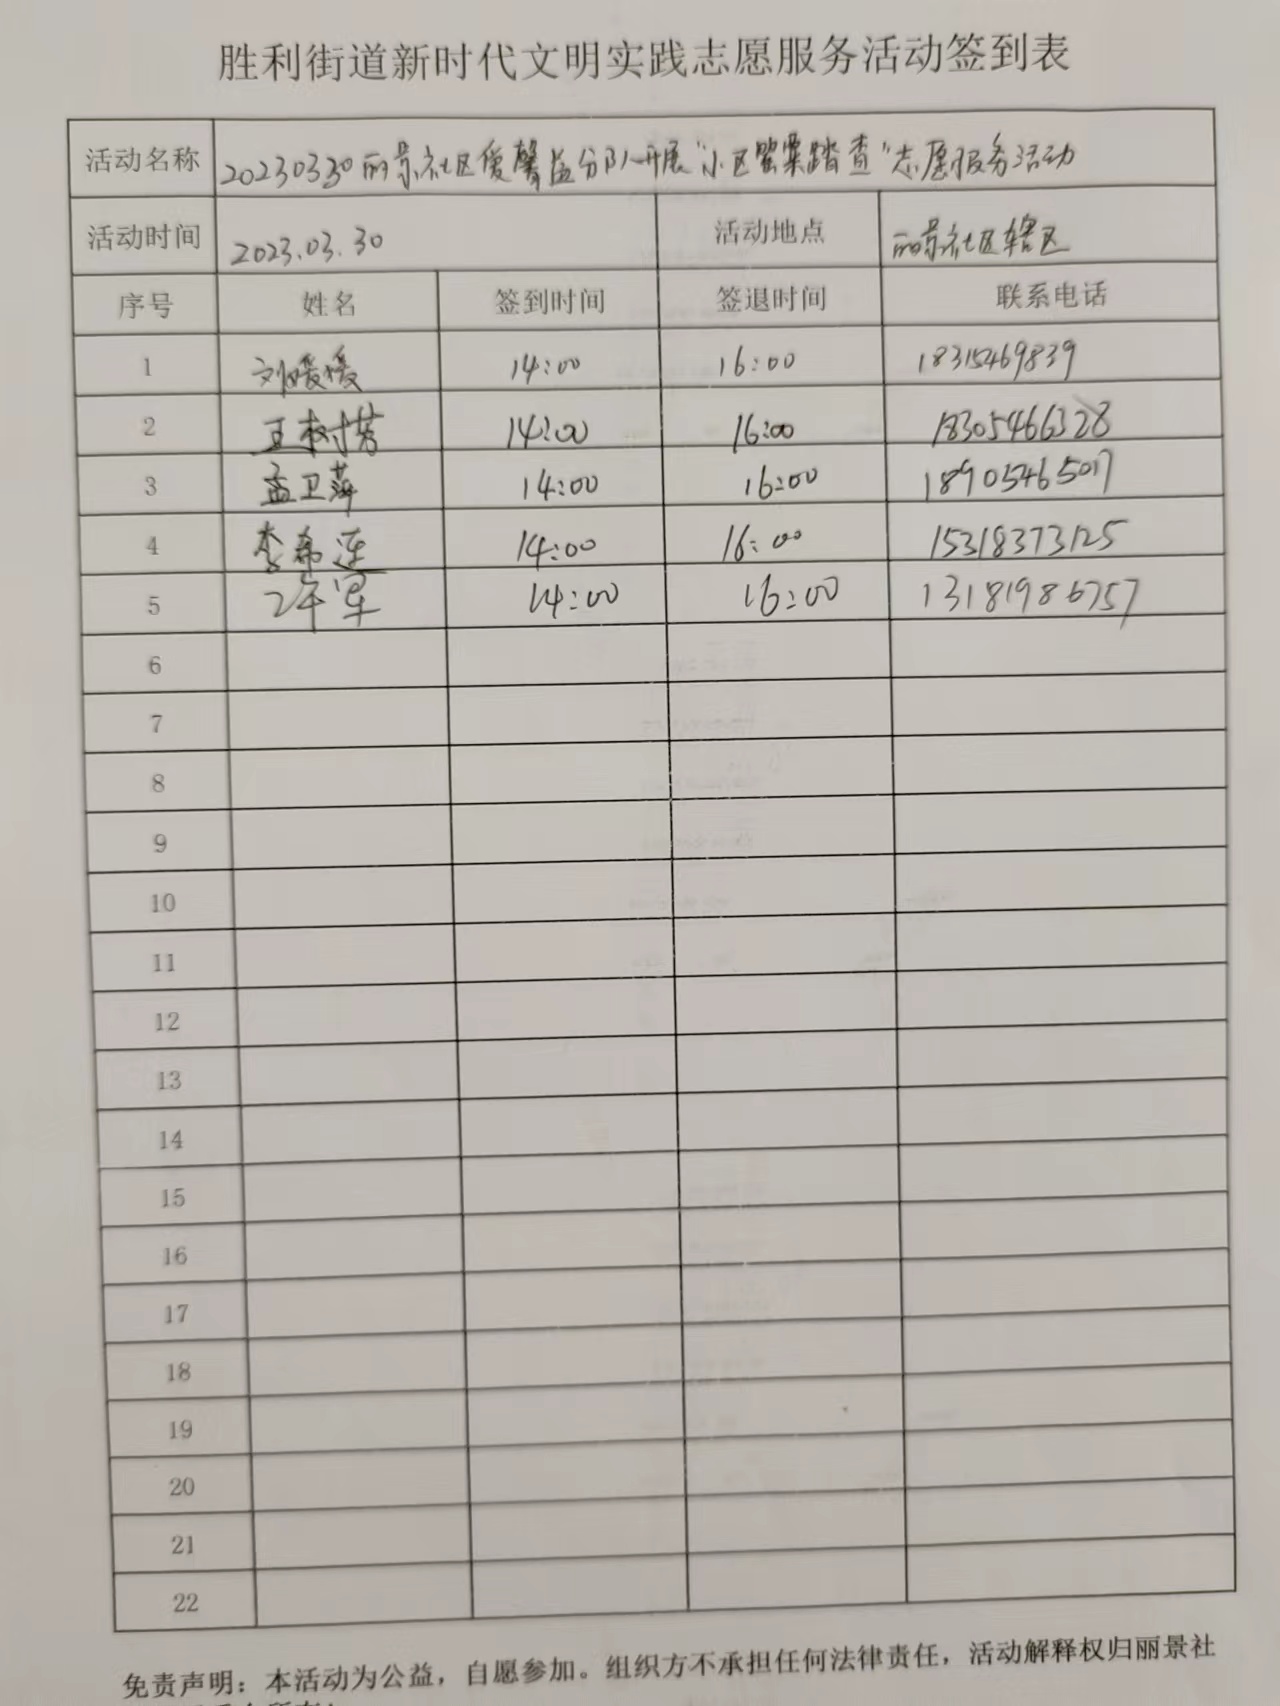 胜利街道新时代文明实践志愿服务活动签到表
活动名称 20230330丽景社区爱馨益分队开展“小区罂粟踏查”志愿服务活动
活动时间 2023.03.30 活动地点 丽景社区辖区
序号 姓名 签到时间 签退时间 联系电话
1 刘媛媛 14:00 16:00 18315469839
2 王树芳 14:00 16:00 18305466328
3 孟卫萍 14:00 16:00 18905465017
4 李希莲 14:00 16:00 15318373125
5 14:00 16:00 13181986757
6
7
8
9
10
11
12
13
14
15
16
17
18
19
20
21
22
免责声明：本活动为公益，自愿参加。组织方不承担任何法律责任，活动解释权归丽景社